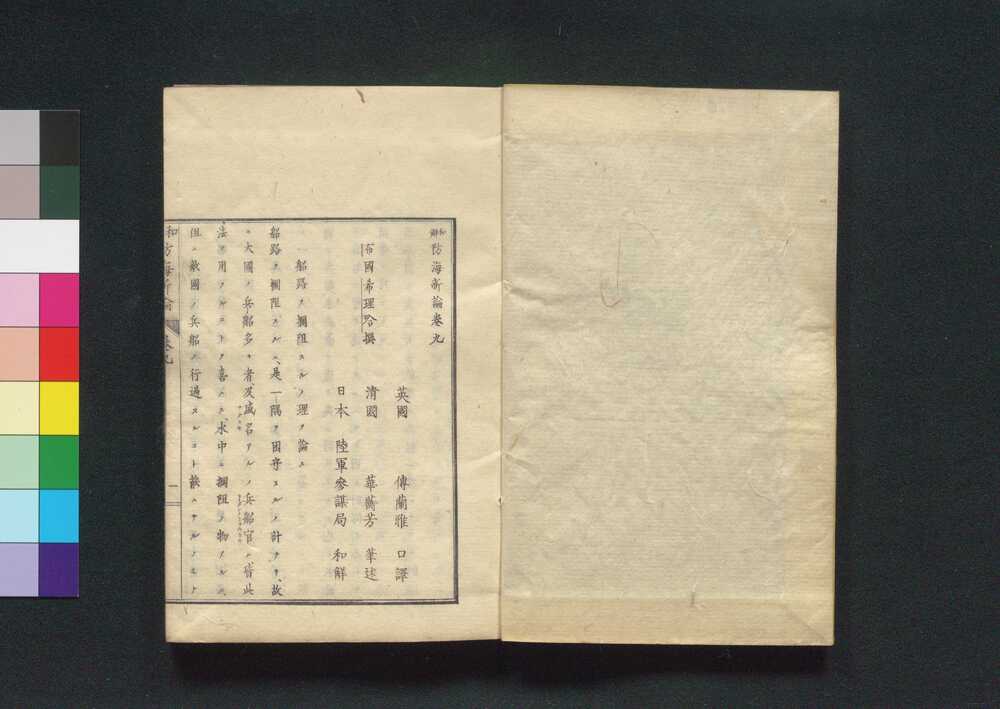 和解防海新論卷九
英國 傳蘭雅 口譯
布國希理哈撰 清國 華蘅芳 筆述
日本 陸軍參謀局 和解
船路ヲ攔阻スルノ理ヲ論ス
船路ヲ攔阻スルハ、是一隅ヲ困守スルノ計ナリ、故
ニ大國ノ兵船多キ者及威名アルノ兵船官ハ皆此
法ヲ用フルコトヲ喜ハス、水中ニ攔阻ノ物アルハ、
但ニ敵國ノ兵船ノ行過スルコト能ハサルノミナ
和防海新論 卷九 一